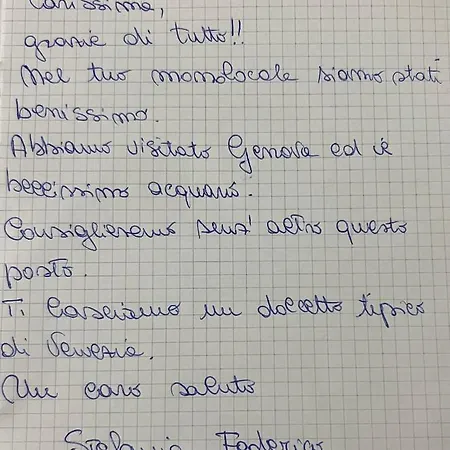 Carissima,
grazie di tutto!!
Nel tuo monolocale siamo stati
benissimo.
Abbiamo visitato Genova ed il
bellissimo acquario.
Consiglieremo senz'altro questo
posto.
Ti lasciamo un dolcetto tipico
di Venezia.
Un caro saluto
Stefania Federico